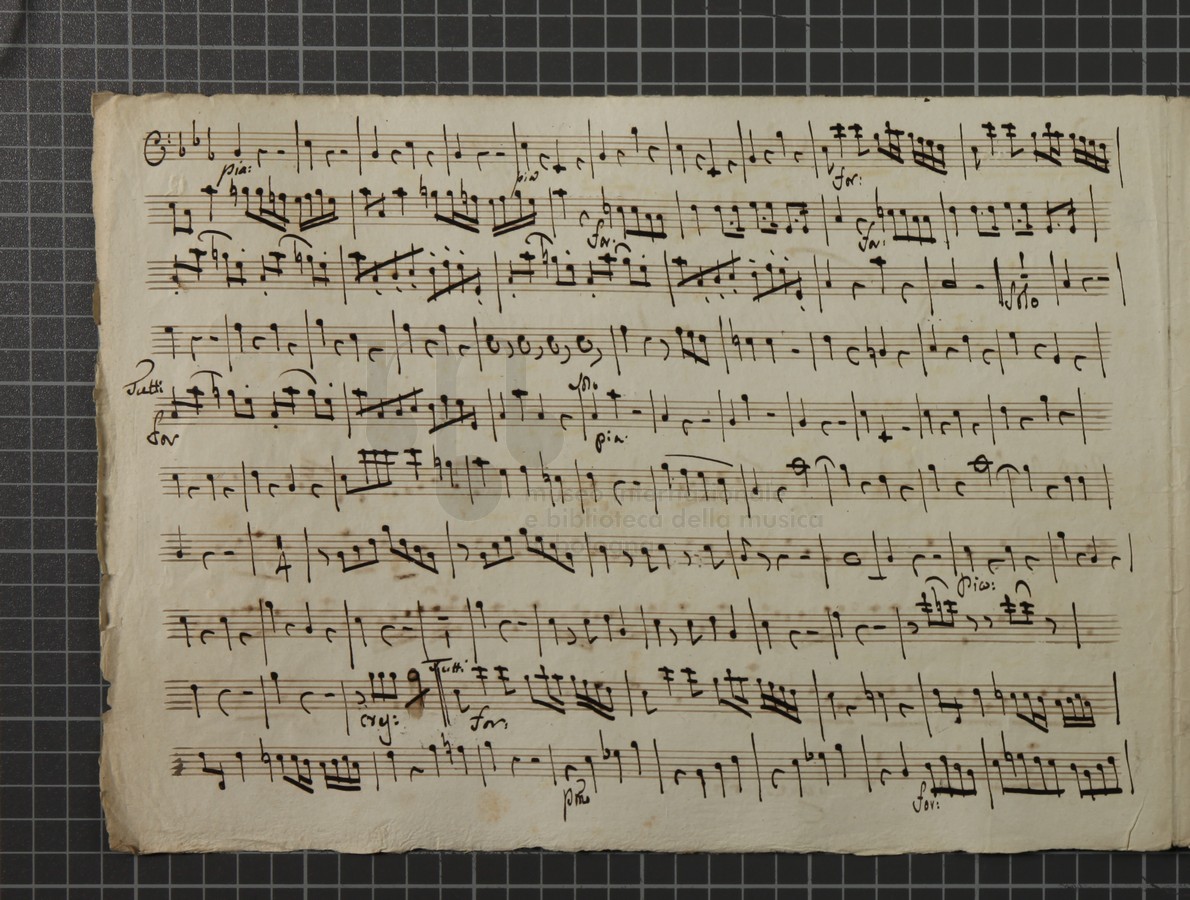 pia: pia for:
for: for:
Solo
Tutti Solo
for pia:
museo internazionale
e biblioteca della musica
pia:
Tutti
cres: for:
pmo for: